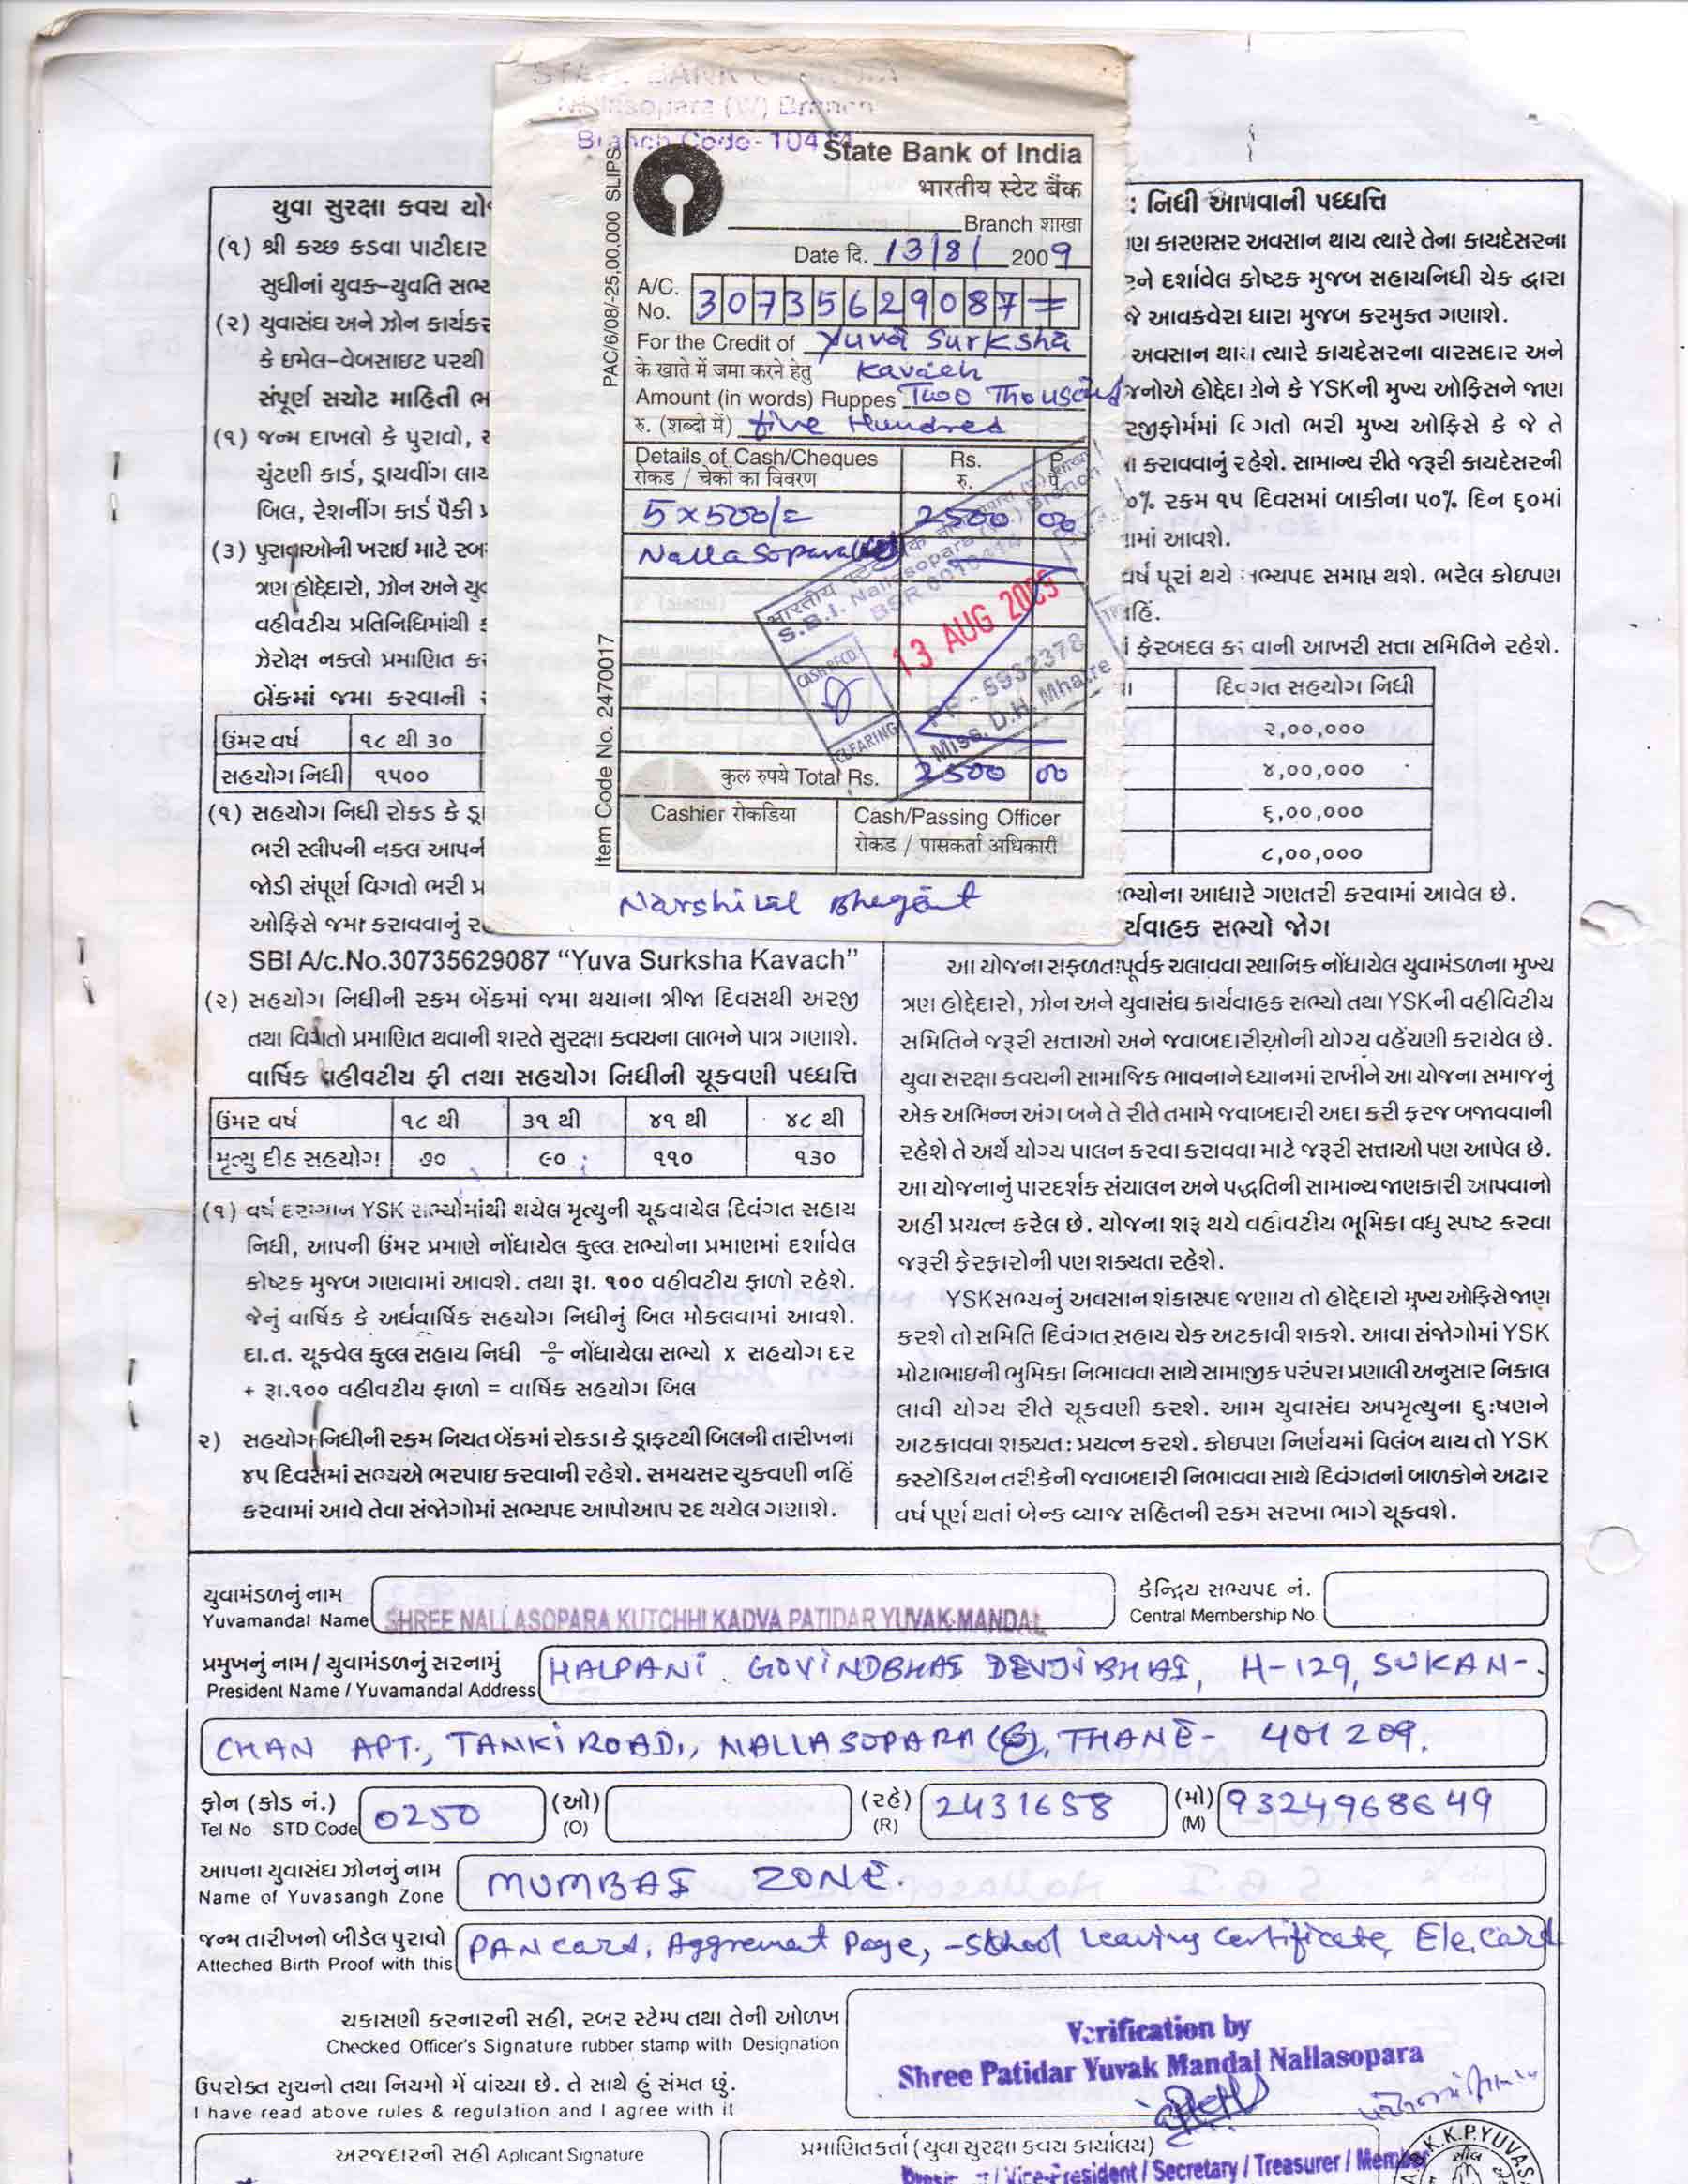 STATE BANK OF INDIA
Nallasopara (W) Branch
Branch Code- 10414
PAC/6/08/-25,00,000 SLIPS
Item Code No. 2470017
State Bank of India
भारतीय स्टेट बैंक
Branch शाखा
Date दि. 13/8/ 2009
A/C. No. 30735629087=
For the Credit of Yuva Surksha
के खाते में जमा करने हेतु Kavach
Amount (in words) Ruppes Two Thousand
रु. (शब्दो में) five Hundred
Details of Cash/Cheques Rs. P.
रोकड / चेकों का विवरण रु. पै
5 x 500/= 2500 00
Nallasopara
S.B.I. Nallasopara (W.) Branch
13 AUG 2009
CASH RECD.
PF - 5932378
CLEARING
Miss. D.H. Mhatre
कुल रुपये Total Rs. 2500 00
Cashier रोकडिया Cash/Passing Officer
रोकड / पासकर्ता अधिकारी
Narshilal Bhagat
યુવા સુરક્ષા કવચ યો
(૧) શ્રી કચ્છ કડવા પાટીદાર
સુધીનાં યુવક-યુવતિ સભ્ય
(૨) યુવાસંઘ અને ઝોન કાર્યકર
કે ઇમેલ-વેબસાઇટ પરથી
સંપૂર્ણ સચોટ માહિતી ભ
(૧) જન્મ દાખલો કે પુરાવો,
ચુંટણી કાર્ડ, ડ્રાયવીંગ લાય
બિલ, રેશનીંગ કાર્ડ પૈકી
(૩) પુરાવાઓની ખરાઈ માટે રબ
ત્રણ હોદ્દેદારો, ઝોન અને યુ
વહીવટીય પ્રતિનિધિમાંથી
ઝેરોક્ષ નક્લો પ્રમાણિત ક
બેંકમાં જમા કરવાની
ઉંમર વર્ષ ૧૮ થી ૩૦
સહયોગ નિધી ૧૫૦૦
(૧) સહયોગ નિધી રોકડ કે ડ્રા
ભરી સ્લીપની નક્લ આપન
જોડી સંપૂર્ણ વિગતો ભરી પ્ર
ઓફિસે જમા કરાવવાનું ર
SBI A/c.No.30735629087 “Yuva Surksha Kavach”
(૨) સહયોગ નિધીની રકમ બેંકમાં જમા થયાના ત્રીજા દિવસથી અરજી
તથા વિગતો પ્રમાણિત થવાની શરતે સુરક્ષા કવચના લાભને પાત્ર ગણાશે.
વાર્ષિક વહીવટીય ફી તથા સહયોગ નિધીની ચૂકવણી પધ્ધતિ
ઉંમર વર્ષ ૧૮ થી ૩૧ થી ૪૧ થી ૪૮ થી
મૃત્યુ દીઠ સહયોગ ૭૦ ૯૦ ૧૧૦ ૧૩૦
(૧) વર્ષ દરમ્યાન YSK સભ્યોમાંથી થયેલ મૃત્યુની ચૂકવાયેલ દિવંગત સહાય
નિધી, આપની ઉંમર પ્રમાણે નોંધાયેલ કુલ્લ સભ્યોના પ્રમાણમાં દર્શાવેલ
કોષ્ટક મુજબ ગણવામાં આવશે. તથા રૂા. ૧૦૦ વહીવટીય ફાળો રહેશે.
જેનું વાર્ષિક કે અર્ધવાર્ષિક સહયોગ નિધીનું બિલ મોકલવામાં આવશે.
દા.ત. ચૂકવેલ કુલ્લ સહાય નિધી ÷ નોંધાયેલા સભ્યો x સહયોગ દર
+ રૂા.૧૦૦ વહીવટીય ફાળો = વાર્ષિક સહયોગ બિલ
૨) સહયોગ નિધીની રકમ નિયત બેંકમાં રોકડા કે ડ્રાફટથી બિલની તારીખના
૪૫ દિવસમાં સભ્યએ ભરપાઇ કરવાની રહેશે. સમયસર ચુકવણી નહિં
કરવામાં આવે તેવા સંજોગોમાં સભ્યપદ આપોઆપ રદ થયેલ ગણાશે.
: નિધી આપવાની પધ્ધતિ
ણ કારણસર અવસાન થાય ત્યારે તેના કાયદેસરના
રને દર્શાવેલ કોષ્ટક મુજબ સહાયનિધી ચેક દ્વારા
જે આવકવેરા ધારા મુજબ કરમુક્ત ગણાશે.
અવસાન થાય ત્યારે કાયદેસરના વારસદાર અને
જનોએ હોદ્દેદારોને કે YSKની મુખ્ય ઓફિસને જાણ
રજીફોર્મમાં વિગતો ભરી મુખ્ય ઓફિસે કે જે તે
ા કરાવવાનું રહેશે. સામાન્ય રીતે જરૂરી કાયદેસરની
૦% રકમ ૧૫ દિવસમાં બાકીના ૫૦% દિન ૬૦માં
ામાં આવશે.
વર્ષ પૂરાં થયે સભ્યપદ સમાપ્ત થશે. ભરેલ કોઇપણ
હિં.
ફેરબદલ કરવાની આખરી સત્તા સમિતિને રહેશે.
દિવગત સહયોગ નિધી
૨,૦૦,૦૦૦
૪,૦૦,૦૦૦
૬,૦૦,૦૦૦
૮,૦૦,૦૦૦
ભ્યોના આધારે ગણતરી કરવામાં આવેલ છે.
ર્યવાહક સભ્યો જોગ
આ યોજના સફળતાપૂર્વક ચલાવવા સ્થાનિક નોંધાયેલ યુવામંડળના મુખ્ય
ત્રણ હોદ્દેદારો, ઝોન અને યુવાસંઘ કાર્યવાહક સભ્યો તથા YSKની વહીવિટીય
સમિતિને જરૂરી સત્તાઓ અને જવાબદારીઓની યોગ્ય વહેંચણી કરાયેલ છે.
યુવા સરક્ષા કવચની સામાજિક ભાવનાને ધ્યાનમાં રાખીને આ યોજના સમાજનું
એક અભિન્ન અંગ બને તે રીતે તમામે જવાબદારી અદા કરી ફરજ બજાવવાની
રહેશે તે અર્થે યોગ્ય પાલન કરવા કરાવવા માટે જરૂરી સત્તાઓ પણ આપેલ છે.
આ યોજનાનું પારદર્શક સંચાલન અને પદ્ધતિની સામાન્ય જાણકારી આપવાનો
અહીં પ્રયત્ન કરેલ છે. યોજના શરૂ થયે વહીવટીય ભૂમિકા વધુ સ્પષ્ટ કરવા
જરૂરી ફેરફારોની પણ શક્યતા રહેશે.
YSKસભ્યનું અવસાન શંકાસ્પદ જણાય તો હોદ્દેદારો મુખ્ય ઓફિસે જાણ
કરશે તો સમિતિ દિવંગત સહાય ચેક અટકાવી શકશે. આવા સંજોગોમાં YSK
મોટાભાઇની ભુમિકા નિભાવવા સાથે સામાજીક પરંપરા પ્રણાલી અનુસાર નિકાલ
લાવી યોગ્ય રીતે ચૂકવણી કરશે. આમ યુવાસંઘ અપમૃત્યુના દુઃષણને
અટકાવવા શક્યતઃ પ્રયત્ન કરશે. કોઇપણ નિર્ણયમાં વિલંબ થાય તો YSK
કસ્ટોડિયન તરીકેની જવાબદારી નિભાવવા સાથે દિવંગતનાં બાળકોને અઢાર
વર્ષ પૂર્ણ થતાં બેન્ક વ્યાજ સહિતની રકમ સરખા ભાગે ચૂકવશે.
યુવામંડળનું નામ
Yuvamandal Name SHREE NALLASOPARA KUTCHHI KADVA PATIDAR YUVAK MANDAL
કેન્દ્રિય સભ્યપદ નં.
Central Membership No
પ્રમુખનું નામ / યુવામંડળનું સરનામું
President Name / Yuvamandal Address HALPANI GOVINDBHAI DEVJIBHAI, H-129, SUKAN-
CHAN APT., TANKI ROAD,, NALLASOPARA (E), THANE- 401 209.
ફોન (કોડ નં.) (ઓ) (રહે) (મો)
Tel No STD Code 0250 (O) (R) 2431658 (M) 9324968649
આપના યુવાસંઘ ઝોનનું નામ
Name of Yuvasangh Zone MUMBAI ZONE.
જન્મ તારીખનો બીડેલ પુરાવો
Atteched Birth Proof with this PAN card, Aggrement Page, -School Leaving Certificate, Ele. Card
ચકાસણી કરનારની સહી, રબર સ્ટેમ્પ તથા તેની ઓળખ
Checked Officer's Signature rubber stamp with Designation
Verification by
Shree Patidar Yuvak Mandal Nallasopara
ઉપરોક્ત સુચનો તથા નિયમો મેં વાંચ્યા છે. તે સાથે હું સંમત છું.
I have read above rules & regulation and I agree with it
અરજદારની સહી Aplicant Signature
પ્રમાણિતકર્તા (યુવા સુરક્ષા કવચ કાર્યાલય)
/ Vice-President / Secretary / Treasurer / Member
K.K.P.YUVAS
સીલ